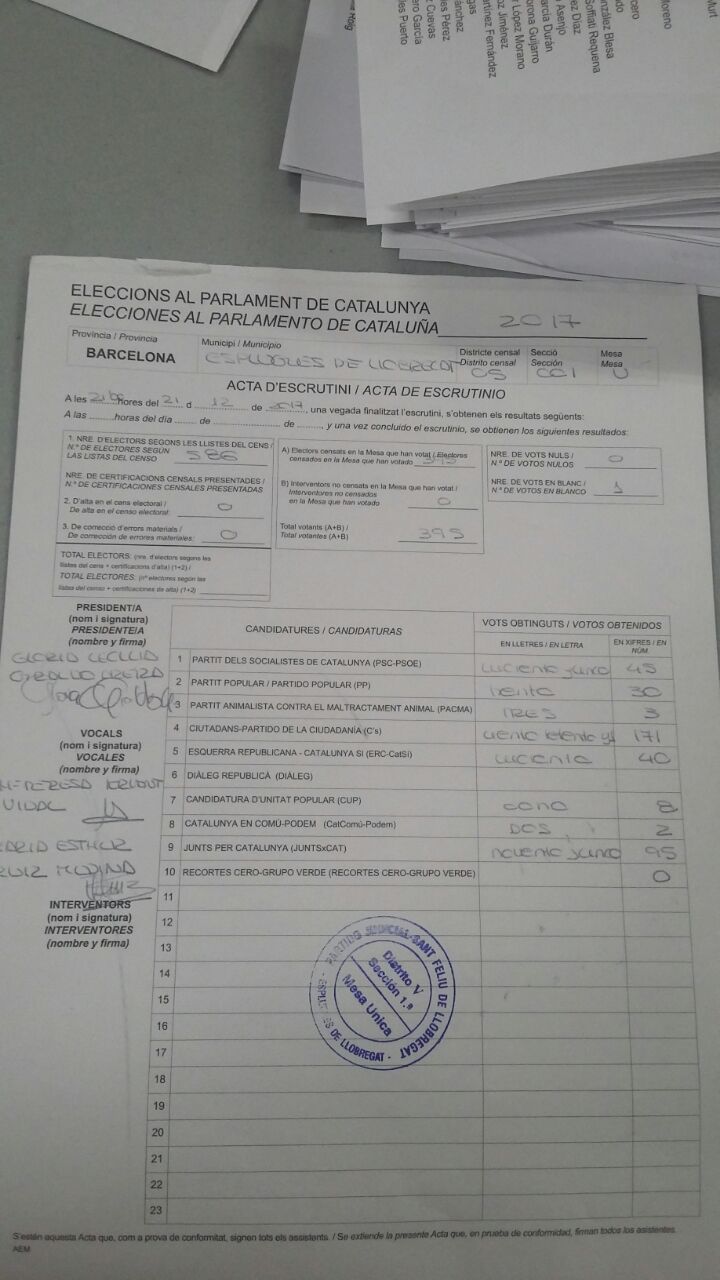 Murt
Moreno
rcero
ndo
onzález Blesa
Soffiati Requena
ez Díaz
o Asenjo
arcía Durán
orona Guijarro
López Morano
oz Jiménez
artínez Fernández
gas
ánchez
les Pérez
Cuevas
ero García
les Puerto
ELECCIONS AL PARLAMENT DE CATALUNYA
ELECCIONES AL PARLAMENTO DE CATALUÑA 2017
Província / Provincia
BARCELONA
Municipi / Municipio
ESPLUGUES DE LLOBREGAT
Districte censal
Distrito censal
05
Secció
Sección
001
Mesa
Mesa
U
ACTA D'ESCRUTINI / ACTA DE ESCRUTINIO
A les hores del 21 d 12 de 2017, una vegada finalitzat l'escrutini, s'obtenen els resultats següents:
A las horas del día de de y una vez concluido el escrutinio, se obtienen los siguientes resultados:
1. NRE. D'ELECTORS SEGONS LES LLISTES DEL CENS /
N.º DE ELECTORES SEGÚN
LAS LISTAS DEL CENSO 586
NRE. DE CERTIFICACIONS CENSALS PRESENTADES /
N.º DE CERTIFICACIONES CENSALES PRESENTADAS
2. D'alta en el cens electoral /
De alta en el censo electoral: 0
3. De correcció d'errors materials /
De corrección de errores materiales: 0
TOTAL ELECTORS: (nre. d'electors segons les
llistes del cens + certificacions d'alta) (1+2) /
TOTAL ELECTORES: (nº electores según las
listas del censo + certificaciones de alta) (1+2)
A) Electors censats en la Mesa que han votat / Electores
censados en la Mesa que han votado 395
B) Interventors no censats en la Mesa que han votat /
Interventores no censados
en la Mesa que han votado 0
Total votants (A+B) /
Total votantes (A+B) 395
NRE. DE VOTS NULS /
N.º DE VOTOS NULOS 0
NRE. DE VOTS EN BLANC /
N.º DE VOTOS EN BLANCO 1
PRESIDENT/A
(nom i signatura)
PRESIDENTE/A
(nombre y firma)
GLORIA CECILIA
VOCALS
(nom i signatura)
VOCALES
(nombre y firma)
VIDAL
ESTHER
RUIZ
INTERVENTORS
(nom i signatura)
INTERVENTORES
(nombre y firma)
CANDIDATURES / CANDIDATURAS
VOTS OBTINGUTS / VOTOS OBTENIDOS
EN LLETRES / EN LETRA
EN XIFRES / EN NÚM.
1 PARTIT DELS SOCIALISTES DE CATALUNYA (PSC-PSOE) 45
2 PARTIT POPULAR / PARTIDO POPULAR (PP) 30
3 PARTIT ANIMALISTA CONTRA EL MALTRACTAMENT ANIMAL (PACMA) TRES 3
4 CIUTADANS-PARTIDO DE LA CIUDADANÍA (C's) 171
5 ESQUERRA REPUBLICANA - CATALUNYA SÍ (ERC-CatSí) 40
6 DIÀLEG REPUBLICÀ (DIÀLEG)
7 CANDIDATURA D'UNITAT POPULAR (CUP) 8
8 CATALUNYA EN COMÚ-PODEM (CatComú-Podem) DOS 2
9 JUNTS PER CATALUNYA (JUNTSxCAT) 95
10 RECORTES CERO-GRUPO VERDE (RECORTES CERO-GRUPO VERDE) 0
11
12
13
14
15
16
17
18
19
20
21
22
23
PARTIDO JUDICIAL-SANT FELIU DE LLOBREGAT - ESPLUGUES DE LLOBREGAT -
Distrito V
Sección 1.ª
Mesa Unica
S'estén aquesta Acta que, com a prova de conformitat, signen tots els assistents. / Se extiende la presente Acta que, en prueba de conformidad, firman todos los asistentes.
AEM